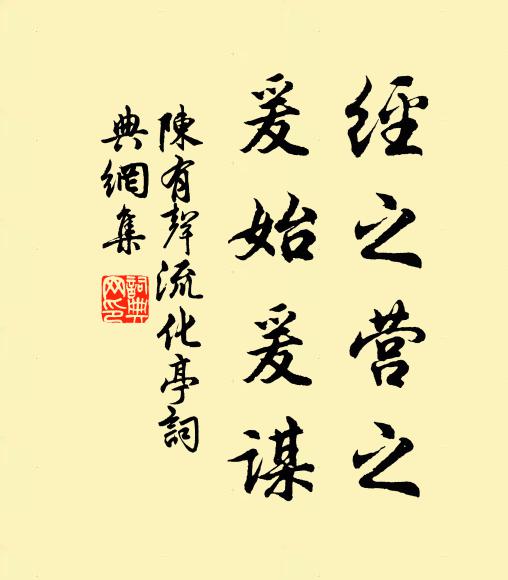 經之营之
爰始爰谋
陳有聲流化亭詞
典網集
詞典网印